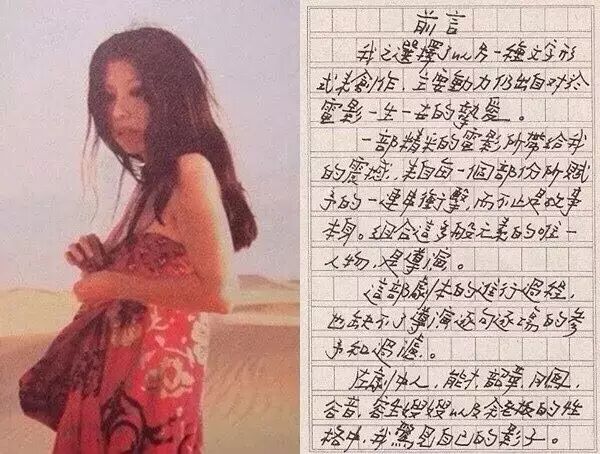 前言
我之選擇了以另一種文字形
式來創作，主要動力仍出自對於
電影一生一世的摯愛。
一部精彩的電影所帶給我
的震撼，來自每一個部份所賦
予的一連串衝擊，而不止是故事
本身。組合這多般元素的唯一
人物，是導演。
這部劇本的進行過程，
也缺不了導演逐句逐場的參
予和過濾。
在劇中人，能才、韶華、月鳳、
谷音、容生嫂嫂以及余老板的性
格中，我驚見自己的影子。